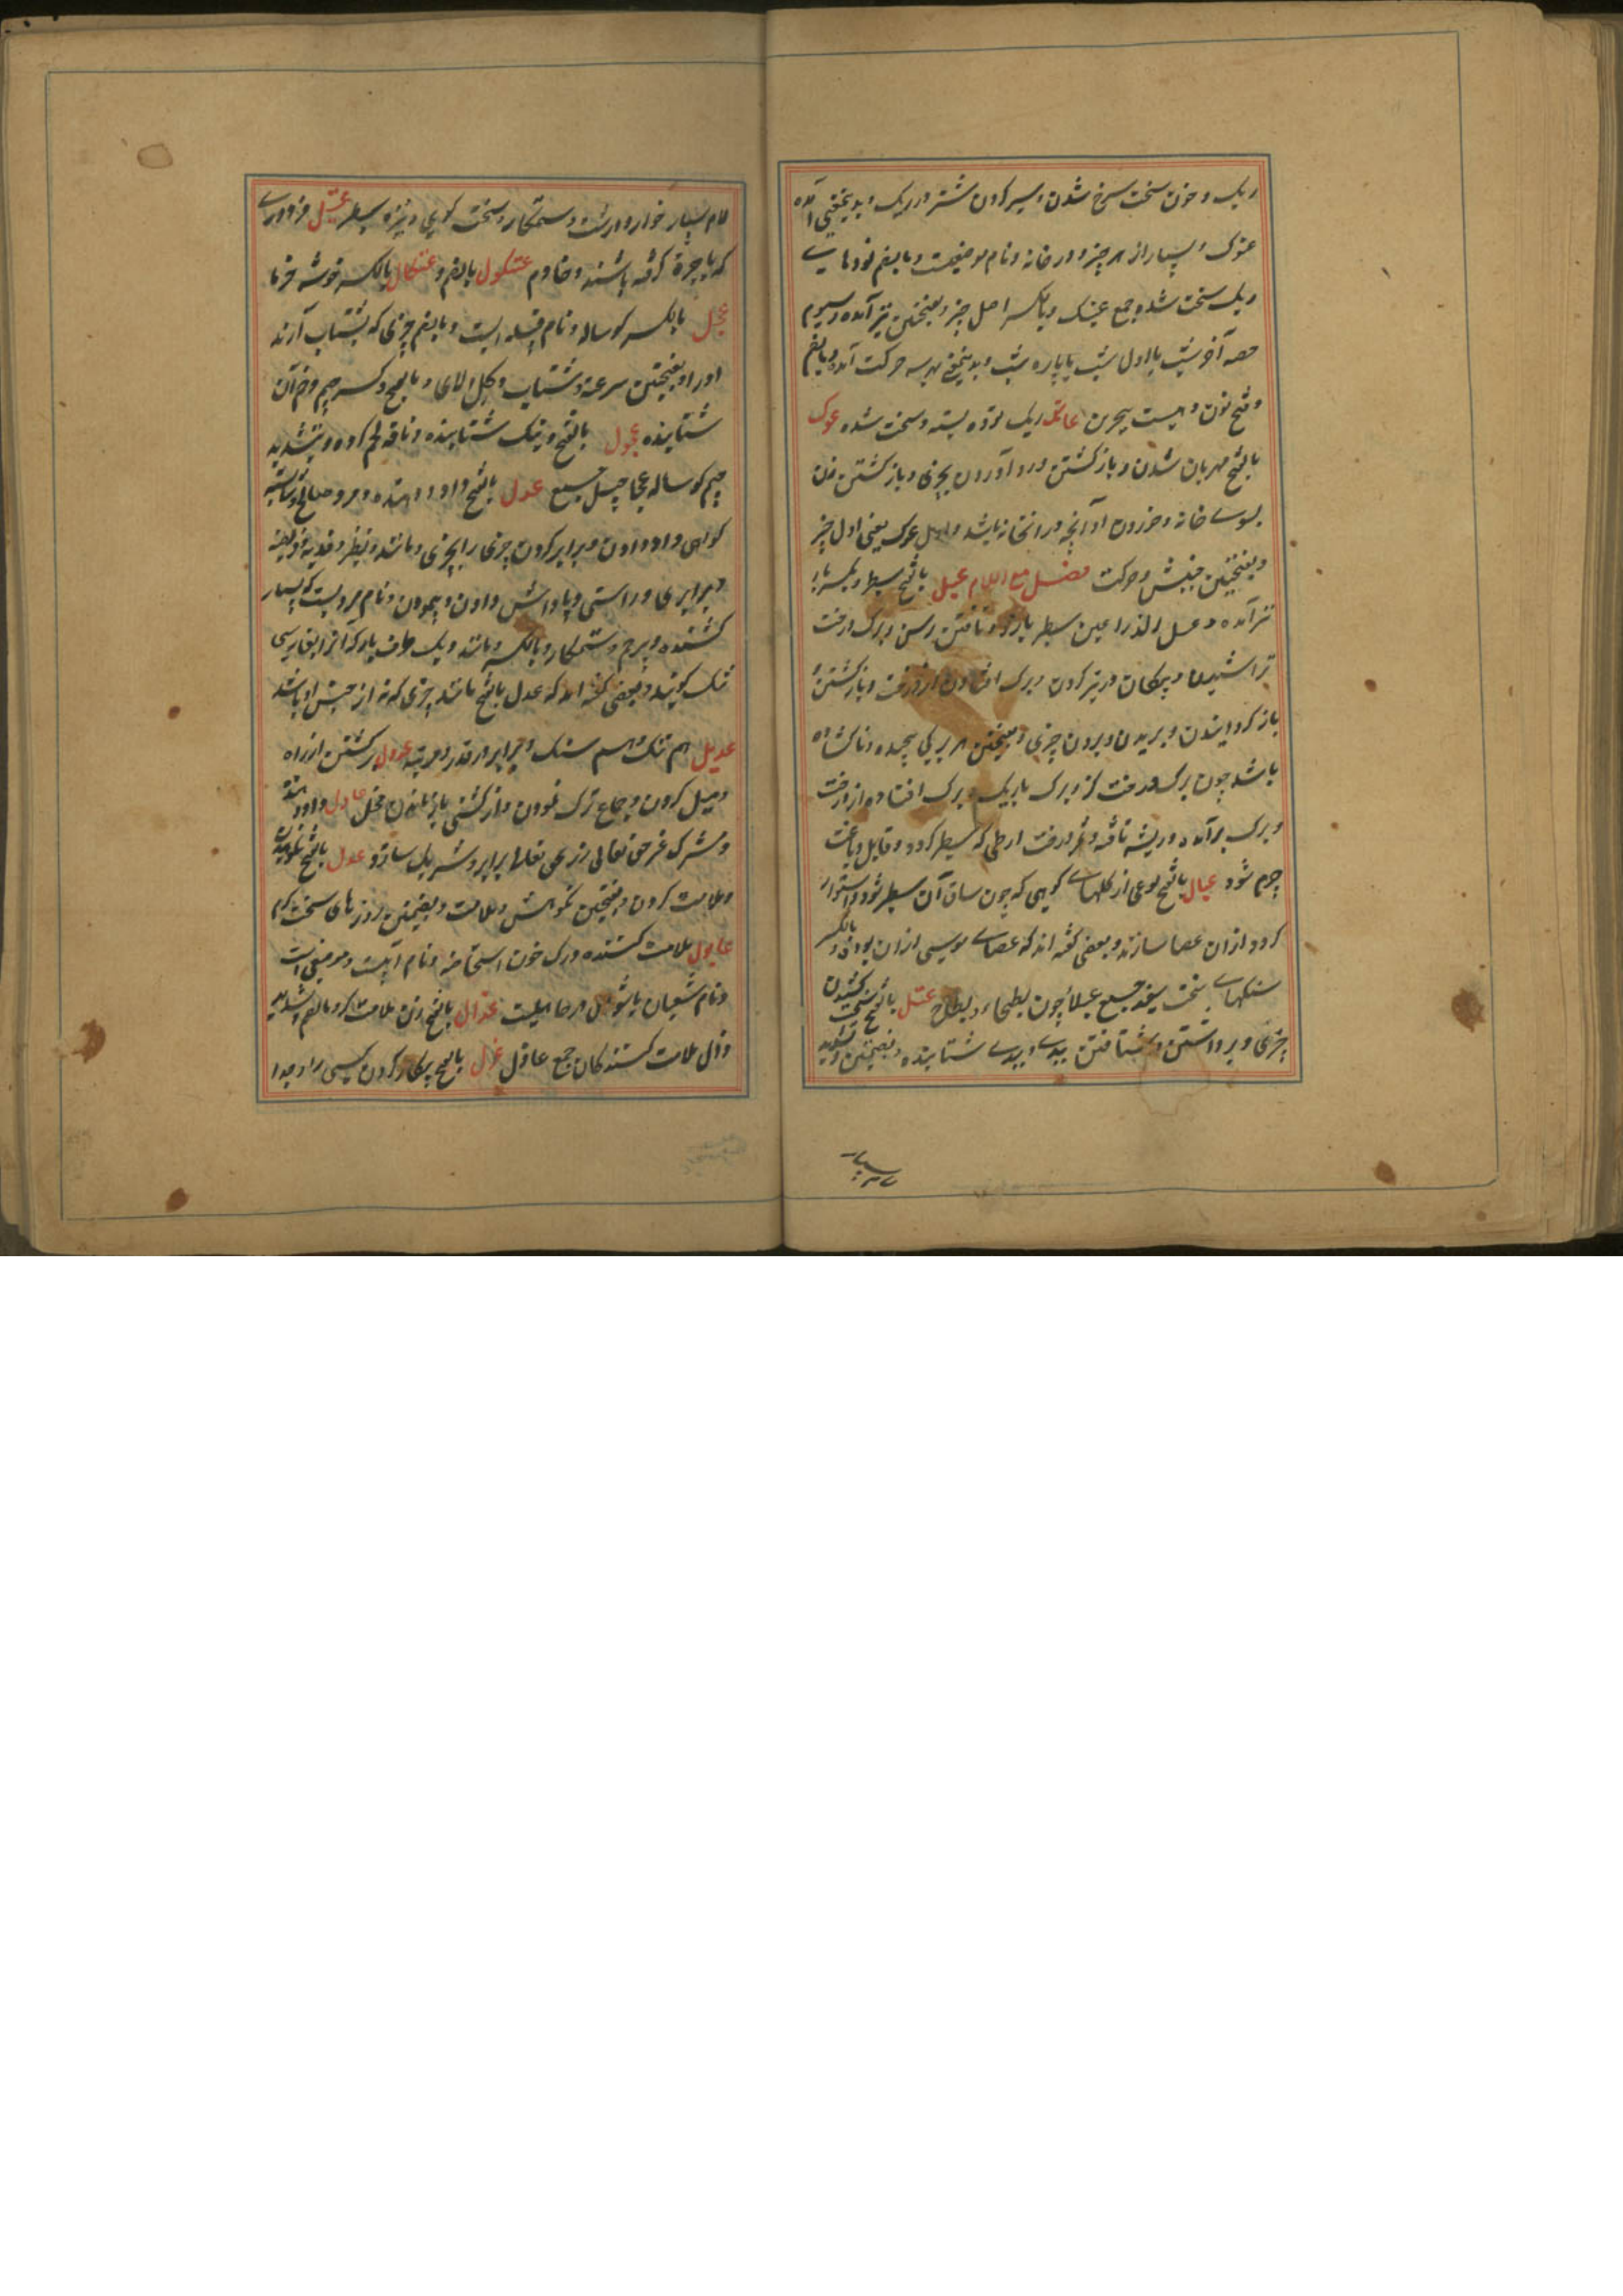 ریک و خون سخت سرخ شدن و سیر کردن شتر در ریک و بدینمعنی آمده
عنوک و بسیار از هر چیز و در خانه و نام موضعیست و بالضم تودهای
ریک سخت شده جمع عینک و بالکسر اصل چیز و بفتحتین نیز آمده و سیوم
حصه آخر شب یا اول شب یا پاره شب و بدینمعنی بهر سه حرکت آمده و بالضم
و فتح نون دهیست ببحرین عاتک ریک توده بسته و سخت شده عوک
بالفتح مهربان شدن و بازگشتن و رو آوردن بچیزی و بازگشتن زن
بسوی خانه و خوردن آنچه در آنخانه باشد و اول عوک یعنی اول چیز
و بفتحتین جنبش و حرکت فصل مع اللام عبل بالفتح سطبر و بکسر با
نیز آمده و عبل الذراعین سطبر بازو و تافتن رسن و برک درخت
تراشیدن و پیکان در تیر کردن و برک افتادن از درخت و بازگشتن و
باز گردانیدن و بریدن و بردن چیزی و بفتحتین هر برکی پیچیده و ناکشاده
باشد چون برک درخت کز و برک باریک و برک افتاده از درخت
و برک برآمده و ریشه تافته و ثمر درخت ارطی که سطبر کردد و قابل دباغت
چرم شود عبال بالفتح نوعی از کلهای کوهی که چون ساق آن سطبر شود و استوار
کردد ازان عصا سازند و بعضی کفته اند که عصای موسی ازان بوده و بالکسر
سنکهای سخت سفید جمع عبلاء چون بطحاء و بطاح عتل بالفتح سخت کشیدن
چیزی و برداشتن و شتافتن ببدی و بدی شتابنده و بضمتین و تشدید
لام بسیار خوار و درشت و ستمکار و سخت کوی و نیزه سطبر عتیل مزدوری
که باجرت کرفته باشند و خادم عثکول بالضم و عثکال بالکسر خوشه خرما
عجل بالکسر کوساله و نام قبیله ایست و بالضم چیزی که بشتاب آرند
او را و بفتحتین سرعت و شتاب و کل و لای و بالفتح و کسر جیم و ضم آن
شتابنده عجول بالفتح و نیک شتابنده و ناقه کم کرده و بتشدید
جیم کوساله عجاجیل جمع عدل بالفتح داد و دهنده و مرد صالح و شایسته
کواهی و داد دادن و برابر کردن چیزی را بچیزی و مانند و نظیر و فدیه و فریضه
و برابری و راستی و پاداش دادن و پیمودن و نام مردیست که بسیار
کشنده و بیرحم و ستمکار و بالکسر مانند و یک طرف بار که آنرا بفارسی
تنک کویند و بعضی کفته اند که عدل بالفتح مانند چیزی که نه از جنس او باشد
عدیل هم تنک و هم سنک و برابر در قدر و مرتبه عدول برکشتن از راه
و میل کردن و جماع ترک نمودن و از کشنی باز ماندن فحل عادل داد دهنده
و مشرک غیر حق تعالی را بحق تعالی برابر و شریک سازد عذل بالفتح نکوهیدن
و ملامت کردن و بفتحتین نکوهش و ملامت و بضمتین روزهای سخت کرم
عاذل ملامت کننده و رک خون استحاضه و نام آبیست و موضعی است
و نام شعبان یا شوال در جاهلیت عذال بالفتح زن ملامت کر و بالضم و تشدید
ذال ملامت کنندکان جمع عاذل عزل بالفتح بیکار کردن کسی را و جدا